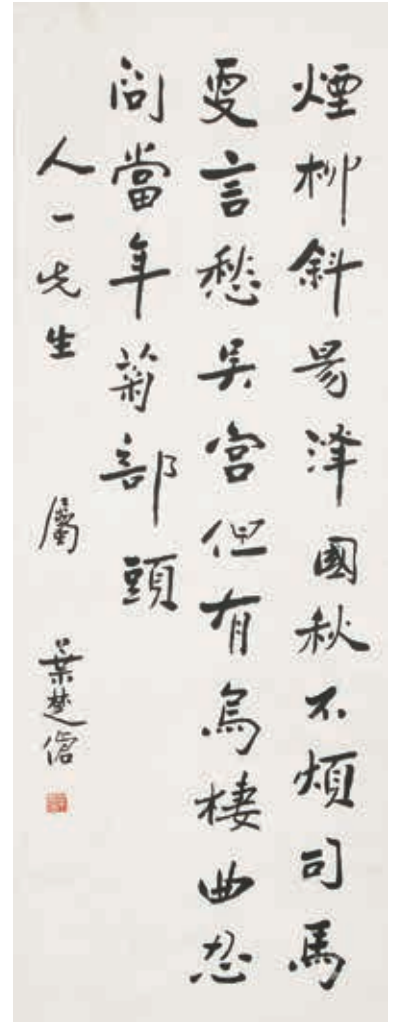 煙柳斜昜澤國秋不煩司馬
更言愁吳宮但有烏棲曲忍
問當年菊部頭
人一先生 屬 葉楚傖